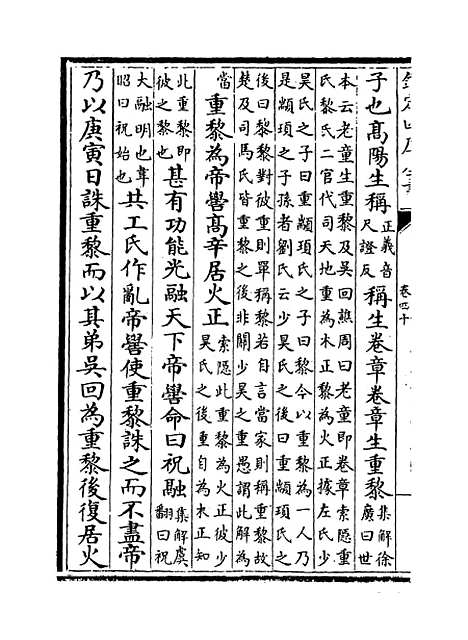 欽定四庫全書
卷四十
子也髙陽生稱正義音尺證反稱生卷章卷章生重黎集解徐廣曰世
本云老童生重黎及吳回譙周曰老童即卷章索隱重
氏黎氏二官代司天地重為木正黎為火正據左氏少
昊氏之子曰重顓頊氏之子曰黎今以重黎為一人乃
是顓頊之子孫者劉氏云少昊氏之後曰重顓頊氏之
後曰黎黎對彼重則單稱黎若自言當家則稱重黎故
楚及司馬氏皆重黎之後非關少昊之重愚謂此解為
當重黎為帝嚳髙辛居火正索隱此重黎為火正彼少昊氏之後重自為木正知
此重黎即彼之黎也甚有功能光融天下帝嚳命曰祝融集解虞翻曰祝
大融明也韋昭曰祝始也共工氏作亂帝嚳使重黎誅之而不盡帝
乃以庚寅日誅重黎而以其弟吳回為重黎後復居火